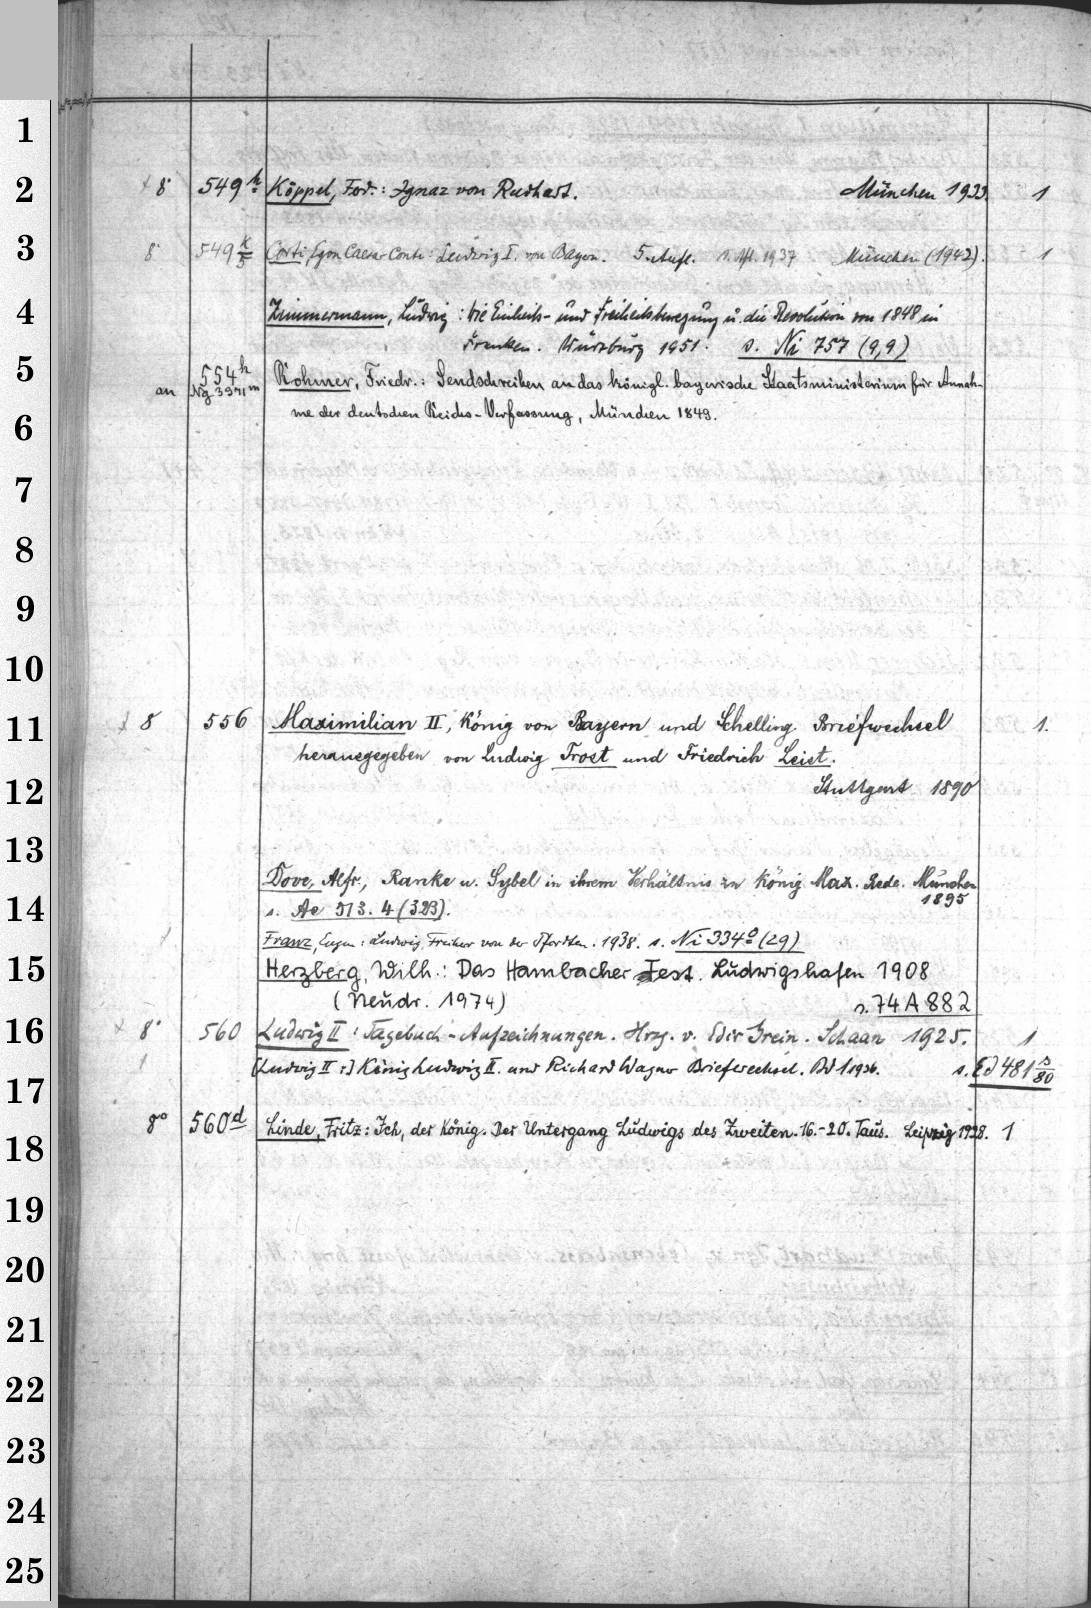 1
2
3
4
5
6
7
8
9
10
11
12
13
14
15
16
17
18
19
20
21
22
23
24
25
8° 549h Köppel, Ferd.: Ignaz von Rudhart. München 1933. 1
8° 549 k/5 Corti, Egon Caesar Conte: Ludwig I. von Bayern. 5. Aufl. 1. Afl. 1937 München (1942). 1
Zimmermann, Ludwig: Die Einheits- und Freiheitsbewegung u. die Revolution von 1848 in
Franken. Würzburg 1951. s. Ni 757 (9,9)
554h
an Ng 3971m Rohmer, Friedr.: Sendschreiben an das königl. bayerische Staatsministerium für Annah-
me der deutschen Reichs-Verfassung, München 1849.
8 556 Maximilian II, König von Bayern und Schelling Briefwechsel 1.
herausgegeben von Ludwig Trost und Friedrich Leist.
Stuttgart 1890
Dove, Alfr., Ranke u. Sybel in ihrem Verhältnis zu König Max. Rede. München
1895
s. Ae 513. 4 (323).
Franz, Eugen: Ludwig Freiherr von der Pfordten. 1938. s. Ni 334o (29)
Herzberg, Wilh.: Das Hambacher Fest. Ludwigshafen 1908
(Neudr. 1974) s. 74 A 882
8° 560 Ludwig II: Tagebuch-Aufzeichnungen. Hrsg. v. Edir Grein. Schaan 1925. 1
[Ludwig II:] König Ludwig II. und Richard Wagner Briefwechsel. Bd 1 1936. s. Ed 481 s/80
8° 560d Linde, Fritz: Ich, der König. Der Untergang Ludwigs des Zweiten. 16.-20. Taus. Leipzig 1928. 1